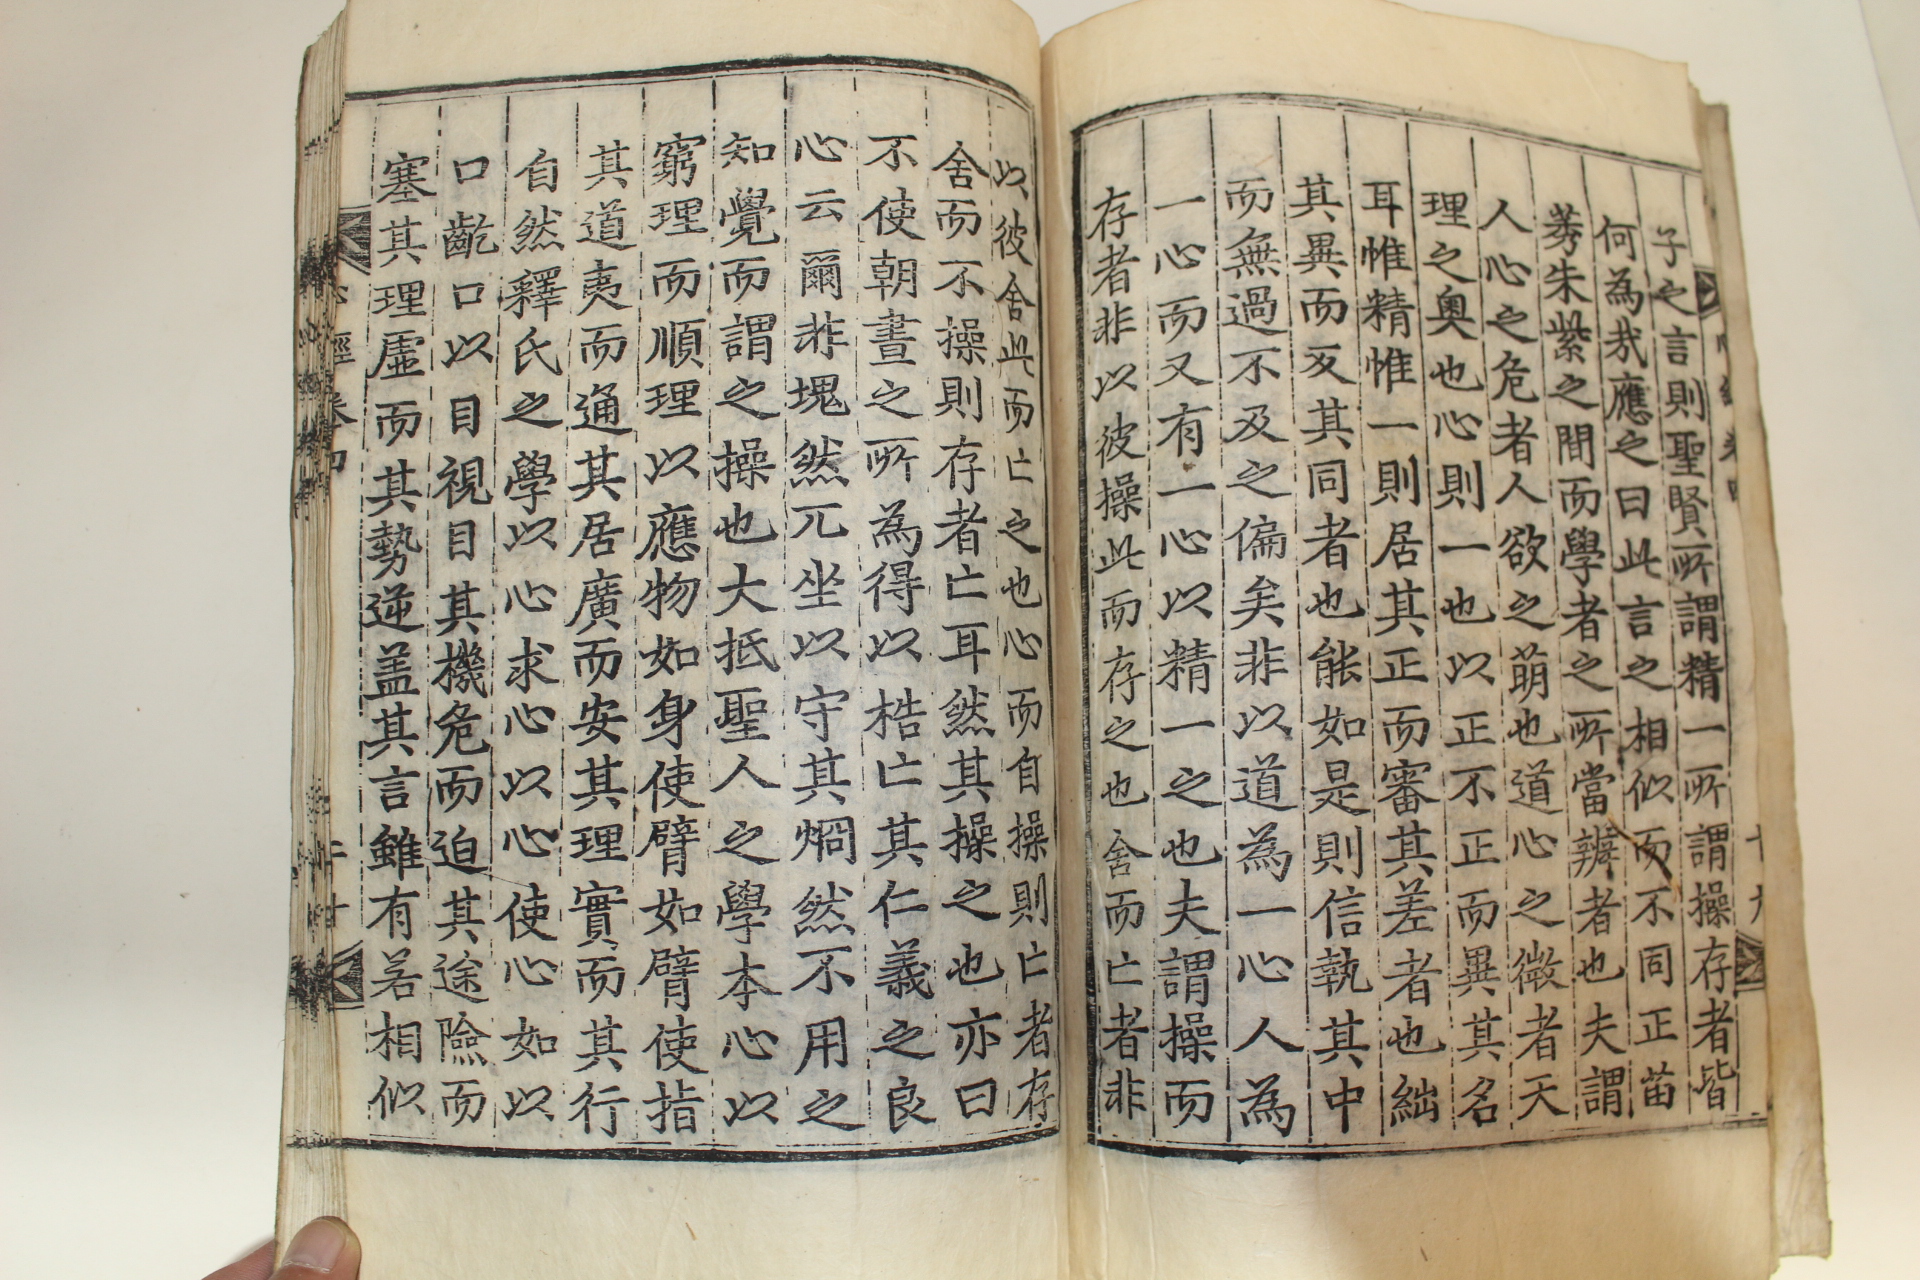 子之言則聖賢所謂精一所謂操存者皆
何為哉應之曰此言之相似而不同正苗
莠朱紫之間而學者之所當辨者也夫謂
人心之危者人欲之萌也道心之微者天
理之奧也心則一也以正不正而異其名
耳惟精惟一則居其正而審其差者也絀
其異而反其同者也能如是則信執其中
而無過不及之偏矣非以道為一心人為
一心而又有一心以精一之也夫謂操而
存者非以彼操此而存之也舍而亡者非
以彼舍此而亡之也心而自操則亡者存
舍而不操則存者亡耳然其操之也亦曰
不使朝晝之所為得以梏亡其仁義之良
心云爾非塊然兀坐以守其烱然不用之
知覺而謂之操也大抵聖人之學本心以
窮理而順理以應物如身使臂如臂使指
其道夷而通其居廣而安其理實而其行
自然釋氏之學以心求心以心使心如以
口齕口以目視目其機危而迫其途險而
塞其理虛而其勢逆盖其言雖有若相似
心經 卷四
二十
十九